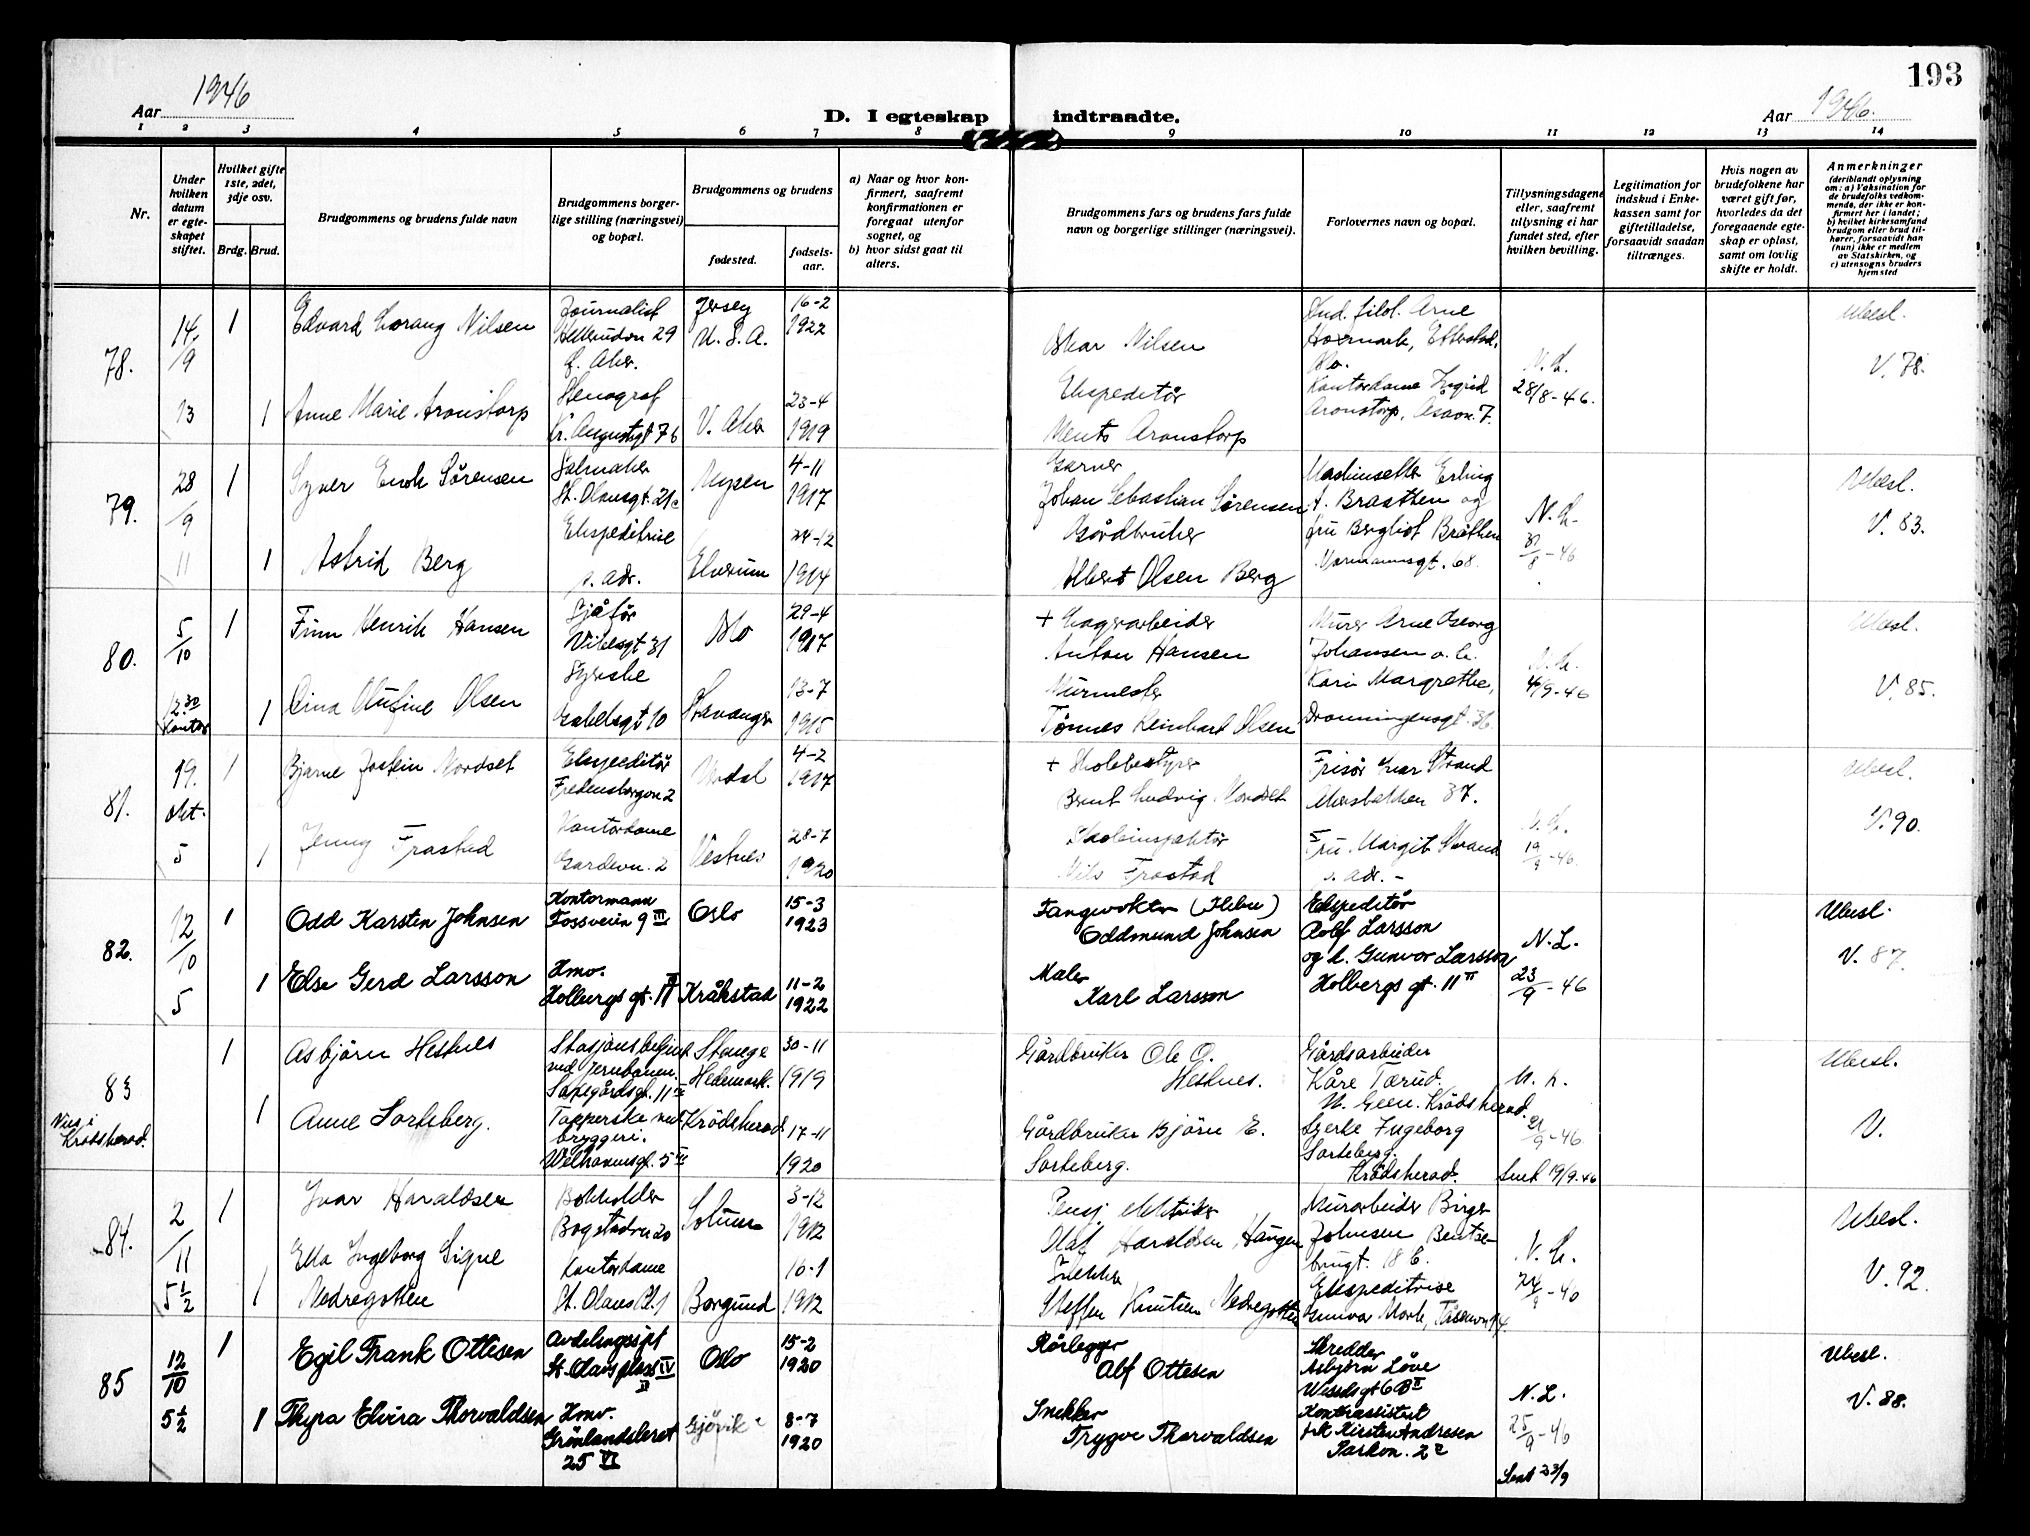 193
Aar 1946
D. I egteskap indtraadte.
Aar 1946.
1 2 3 4 5 6 7 8 9 10 11 12 13 14
Nr.
Under hvilken datum er egteskapet stiftet.
Hvilket gifte 1ste, 2det, 3dje osv.
Brdg. Brud.
Brudgommens og brudens fulde navn
Brudgommens borgerlige stilling (næringsvei) og bopæl.
Brudgommens og brudens
fødested.
fødselsaar.
a) Naar og hvor konfirmert, saafremt konfirmationen er foregaat utenfor sognet, og
b) hvor sidst gaat til alters.
Brudgommens fars og brudens fars fulde navn og borgerlige stillinger (næringsvei).
Forlovernes navn og bopæl.
Tillysningsdagene eller, saafremt tillysning ei har fundet sted, efter hvilken bevilling.
Legitimation for indskud i Enkekassen samt for giftetilladelse, forsaavidt saadan tiltrænges.
Hvis nogen av brudefolkene har været gift før, hvorledes da det foregaaende egteskap er opløst, samt om lovlig skifte er holdt.
Anmerkninger
(deriblandt oplysning om: a) Vaksination for de brudefolks vedkommende, der ikke er konfirmert her i landet; b) hvilket kirkesamfund brudgom eller brud tilhører, forsaavidt han (hun) ikke er medlem av Statskirken, og c) utensogns bruders hjemsted
78. 14/9 13
1 Edvard Lorang Nilsen
Journalist
U. S. A.
Jersey
16-2 1922
Oskar Nilsen
Stud. filol. Arne
Ubesl.
V. 78.
1 Anne Marie Aronstorp
Stenograf
V. Aker
23-4 1919
Ekspeditør
Ments Aronstorp
Kontordame Ingrid
Aronstorp, 
28/8-46.
79. 28/9 11
1 Syver Enok Sørensen
Salmaker
St. Olavsgt. 21c
Mysen
4-11 1917
Garver
Johan Sebastian Sørensen
Maskinsetter Erling
A. Braathen og
fru Bergliot Bråthen
N. L.
31/8-46
Ubesl.
V. 83.
1 Astrid Berg
Ekspeditrise
s. adr.
Elverum
24-12 1914
Gårdbruker
Albert Olsen Berg
80. 5/10 12.30 Kontor
1 Finn Henrik Hansen
Sjåfør
Vibesgt 31
Oslo
29-4 1917
+ Lagerarbeider
Anton Hansen
Murer Arne Georg
Johansen o. h.
Kari Margrethe,
Dronningensgt. 36
N. L.
4/9-46
Ubesl.
V. 85.
1 Dina Olufine Olsen
Syerske
Gabelsgt 10
Stavanger
13-7 1915
Murmester
Tønnes Reinhart Olsen
81. 19. okt. 5
1 Bjarne Jostein Nordset
Ekspeditør
Fredensborgvn 2
4-2 1917
+ Skolebestyrer
Bernt Ludvig Nordset
Frisør Ivar Strand
Akersbakken 37.
Fru Margit Strand
s. adr. -
19/9-46.
Ubesl.
V. 90.
1 Jenny Frostad
Kontordame
Vestnes
28-7 1920
Skoleinspektør
Nils Frostad
82. 12/10 5
1 Odd Karsten Johnsen
Kontormann
Fossveien 9 III
Oslo
15-3 1923
Fangevokter
Oddmund Johnsen
Ekspeditør
Rolf Larsson
og h. Gunvor Larsson
Holbergs gt. 11 II
N. L.
23/9-46
Ubesl.
V. 87.
1 Else Gerd Larsson
Hmv.
Holbergs gt. 11 II
Kråkstad
11-2 1922
Maler
Karl Larsson
83 Vies i Krødsherad.
1 Asbjørn Hestnes
Stasjonsbetjent
ved jernbanen.
Stange
Hedemark.
30-11 1919
Gårdbruker Ole O.
Hestnes.
Gårdsarbeider
Kåre Tærud.
N. L.
21/9-46
Sendt 19/9.46
Ubesl.
V.
1 Anne Sorteberg.
Tapperske ved
bryggeri.
Welhavensgt. 5 IV
Krødsherad.
17-11 1920
Gårdbruker Bjørn E.
Sorteberg.
Gjerte Ingeborg
Sorteberg.
Krødsherad.
84. 2/11 5½
1 Ivar Haraldsen
Bokholder
Bogstadvn 20
Solum
3-12 1912
Pensj. elektriker
Olaf Haraldsen Haugen
Murarbeider Birger
Johnsen Bentse-
brugt. 18 E.
Ekspeditrise
Gunvor Mork, Tåsenvn 14.
N. L.
24/9-46
Ubesl.
V. 92.
1 Ella Ingeborg Signe
Nedregotten
Kontordame
St. Olavs Pl. 1
Borgund
16-1 1912
Snekker
Steffen Knutsen Nedregotten
85 12/10 5½
1 Egil Frank Ottesen
Avdelingssjef
St. Olavs plass IV
Oslo
15-2 1920
Rørlegger
Alf Ottesen
Skredder
Asbjørn Løve
Wesselsgt 6 B II
Kontorassistent
frk Kirsten Andresen
Parkvn. 2
N. L.
25/9-46
Sendt 23/9
Ubesl.
V. 88.
1 Thyra Elvira Thorvaldsen
Hmv.
Grønlandsleret
25 VI
Gjøvik
8-7 1920
Snekker
Trygve Thorvaldsen